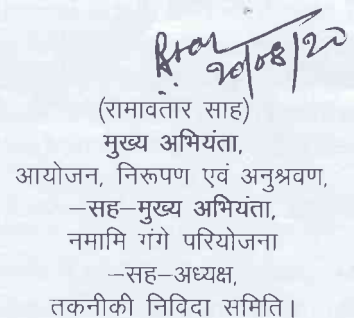 20/08/20
(रामावतार साह)
मुख्य अभियंता,
आयोजन, निरूपण एवं अनुश्रवण,
–सह–मुख्य अभियंता,
नमामि गंगे परियोजना
–सह–अध्यक्ष,
तकनीकी निविदा समिति।